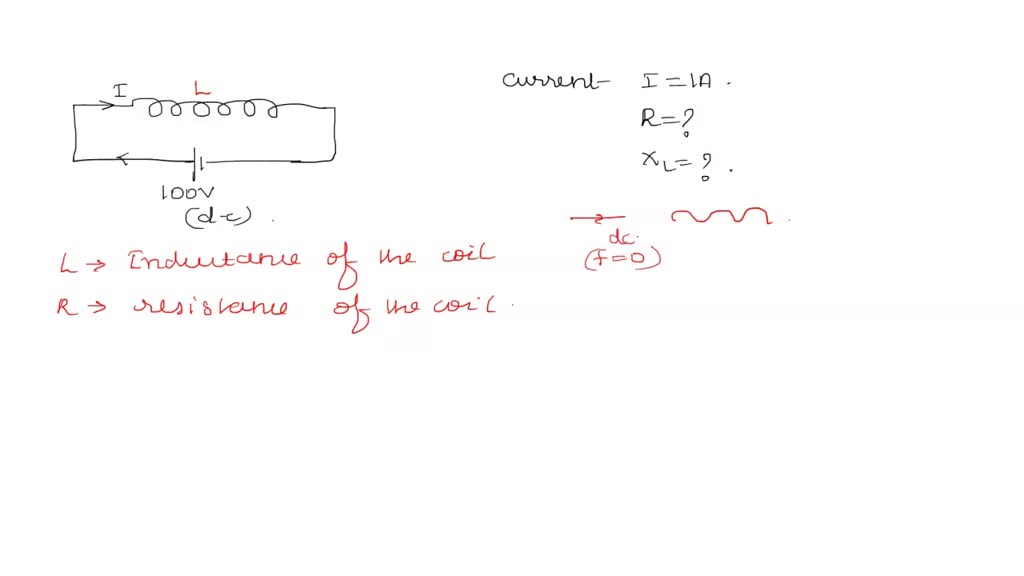 I L
100V
(d-c)
Current- I = 1A.
R = ?
XL = ?.
dc.
(f=0)
L → Inductance of the coil
R → resistance of the coil.